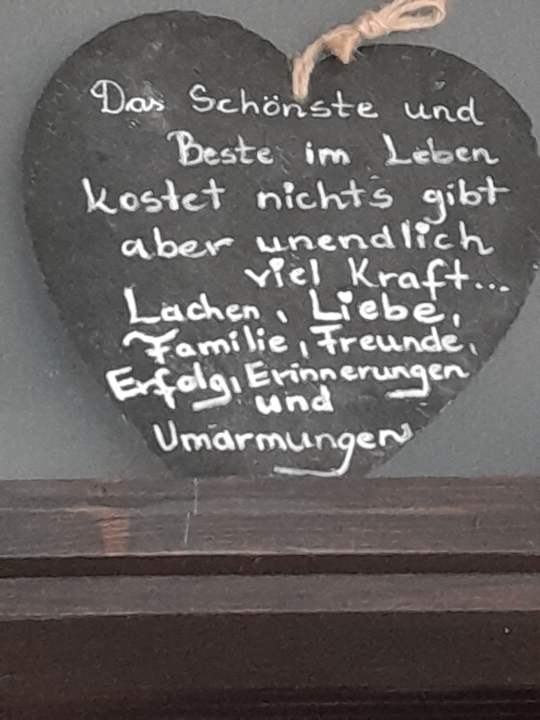 Das Schönste und
Beste im Leben
kostet nichts gibt
aber unendlich
viel Kraft...
Lachen, Liebe,
Familie, Freunde,
Erfolg, Erinnerungen
und
Umarmungen